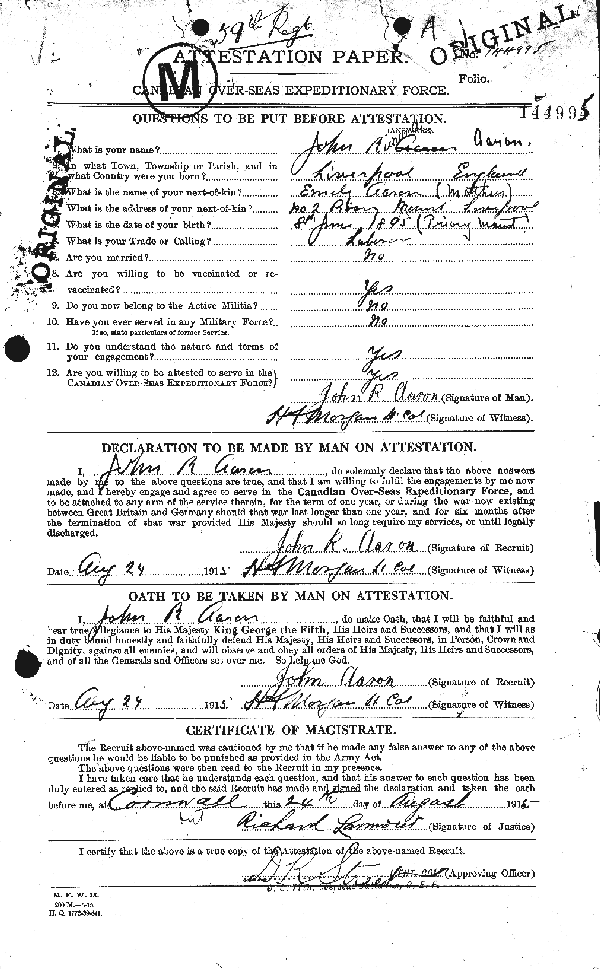 59th Regt
A
ORIGINAL
ATTESTATION PAPER.
No.
Folio.
M
CANADIAN OVER-SEAS EXPEDITIONARY FORCE.
144995
QUESTIONS TO BE PUT BEFORE ATTESTATION.
ORIGINAL
What is your name? John R Aaron.
In what Town, Township or Parish, and in
what Country were you born? Liverpool England
What is the name of your next-of-kin? Emily Aaron (Mother)
What is the address of your next-of-kin? No 2 Mount Liverpool
What is the date of your birth? 8th June 1895 (Priory Mount)
What is your Trade or Calling? Labour
Are you married? No
8. Are you willing to be vaccinated or re-
vaccinated? Yes
9. Do you now belong to the Active Militia? No
10. Have you ever served in any Military Force? No
If so, state particulars of former Service.
11. Do you understand the nature and terms of
your engagement? Yes
12. Are you willing to be attested to serve in the Yes
CANADIAN OVER-SEAS EXPEDITIONARY FORCE?
John R Aaron (Signature of Man).
H F Morgan Lt Col (Signature of Witness).
DECLARATION TO BE MADE BY MAN ON ATTESTATION.
I, John R Aaron, do solemnly declare that the above answers
made by me to the above questions are true, and that I am willing to fulfil the engagements by me now
made, and I hereby engage and agree to serve in the Canadian Over-Seas Expeditionary Force, and
to be attached to any arm of the service therein, for the term of one year, or during the war now existing
between Great Britain and Germany should that war last longer than one year, and for six months after
the termination of that war provided His Majesty should so long require my services, or until legally
discharged.
John R. Aaron (Signature of Recruit)
Date Aug 24 1915 H F Morgan Lt Col (Signature of Witness)
OATH TO BE TAKEN BY MAN ON ATTESTATION.
I, John R Aaron, do make Oath, that I will be faithful and
bear true Allegiance to His Majesty King George the Fifth, His Heirs and Successors, and that I will as
in duty bound honestly and faithfully defend His Majesty, His Heirs and Successors, in Person, Crown and
Dignity, against all enemies, and will observe and obey all orders of His Majesty, His Heirs and Successors,
and of all the Generals and Officers set over me. So help me God.
John Aaron (Signature of Recruit)
Date Aug 24 1915 H F Morgan Lt Col (Signature of Witness)
CERTIFICATE OF MAGISTRATE.
The Recruit above-named was cautioned by me that if he made any false answer to any of the above
questions he would be liable to be punished as provided in the Army Act.
The above questions were then read to the Recruit in my presence.
I have taken care that he understands each question, and that his answer to each question has been
duly entered as replied to, and the said Recruit has made and signed the declaration and taken the oath
before me, at Cornwall this 24th day of August 1915
Ont
Richard (Signature of Justice)
I certify that the above is a true copy of the Attestation of the above-named Recruit.
(Approving Officer)
M. F. W. 23.
H. Q. 1772-39-841.